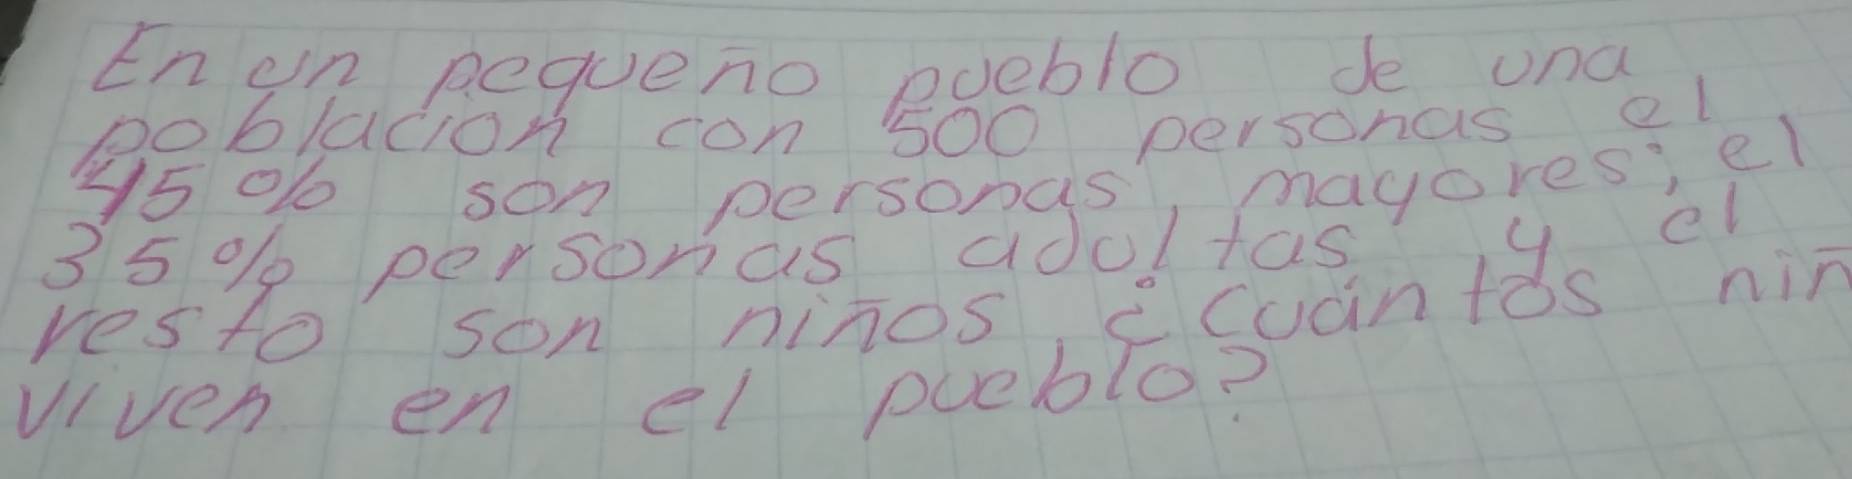 En un pequeño pueblo de una
población con 500 personas el
45% son personas mayores; el
35% personas adultas y el
resto son niños, ¿cuántos niñ
viven en el pueblo?